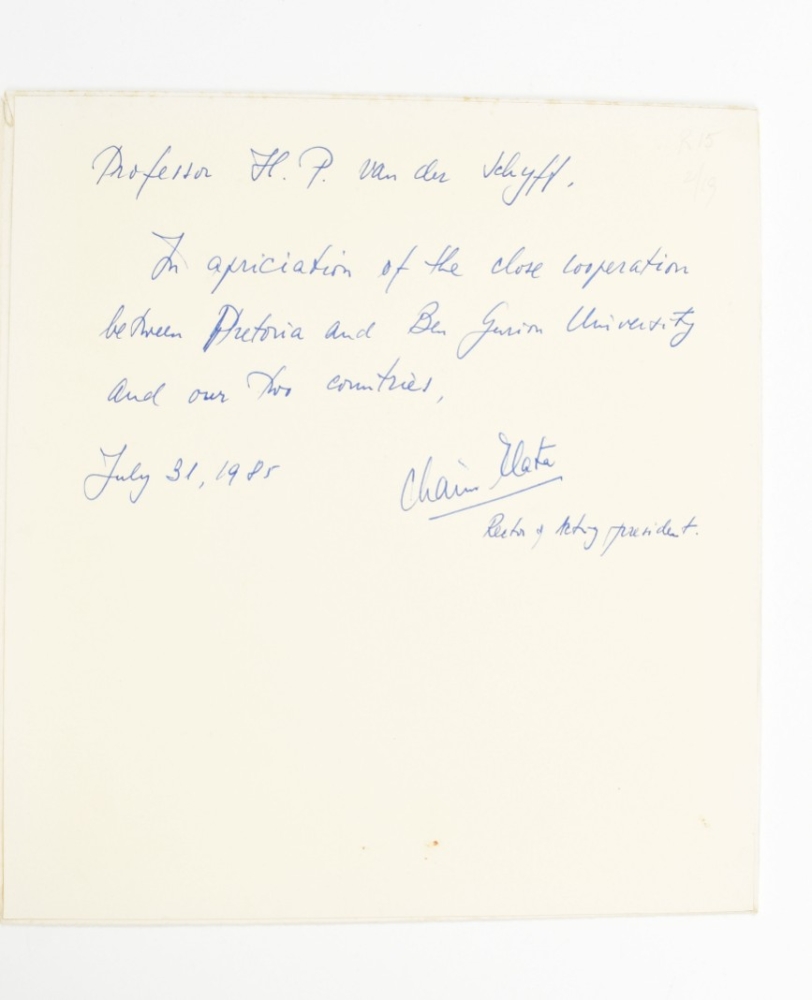 Professor H. P. van der Schyff,
In apriciation of the close cooperation
between Pretoria and Ben Gurion University
and our two countries,
July 31, 1985
Chaim Elata
Rector & Acting president.
R15